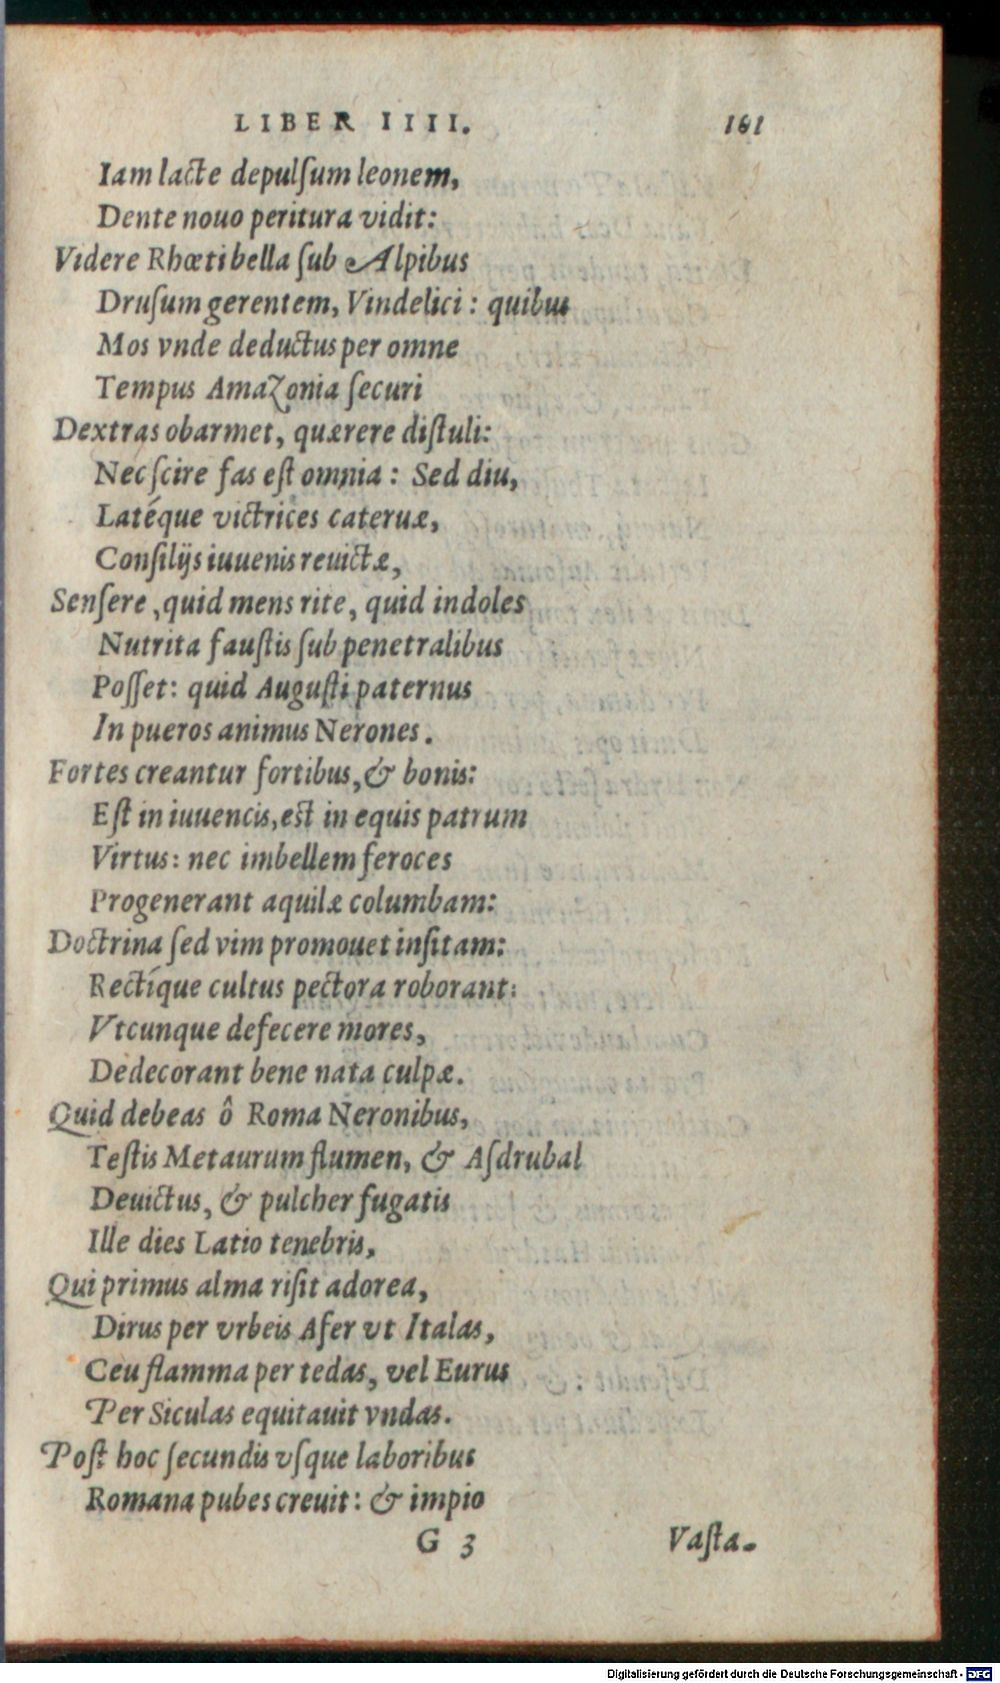 LIBER IIII. 161
Iam lacte depulſum leonem,
Dente nouo peritura vidit:
Videre Rhœti bella ſub Alpibus
Druſum gerentem, Vindelici: quibus
Mos vnde deductus per omne
Tempus Amazonia ſecuri
Dextras obarmet, quærere diſtuli:
Nec ſcire fas eſt omnia: Sed diu,
Latéque victrices cateruæ,
Conſilijs iuuenis reuictæ,
Senſere, quid mens rite, quid indoles
Nutrita fauſtis ſub penetralibus
Poſſet: quid Auguſti paternus
In pueros animus Nerones.
Fortes creantur fortibus, & bonis:
Eſt in iuuencis, eſt in equis patrum
Virtus: nec imbellem feroces
Progenerant aquilæ columbam:
Doctrina ſed vim promouet inſitam:
Rectíque cultus pectora roborant:
Vtcunque defecere mores,
Dedecorant bene nata culpæ.
Quid debeas ô Roma Neronibus,
Teſtis Metaurum flumen, & Aſdrubal
Deuictus, & pulcher fugatis
Ille dies Latio tenebris,
Qui primus alma riſit adorea,
Dirus per vrbeis Afer vt Italas,
Ceu flamma per tedas, vel Eurus
Per Siculas equitauit vndas.
Poſt hoc ſecundis vſque laboribus
Romana pubes creuit: & impio
G 3 Vaſta-
Digitalisierung gefördert durch die Deutsche Forschungsgemeinschaft - DFG